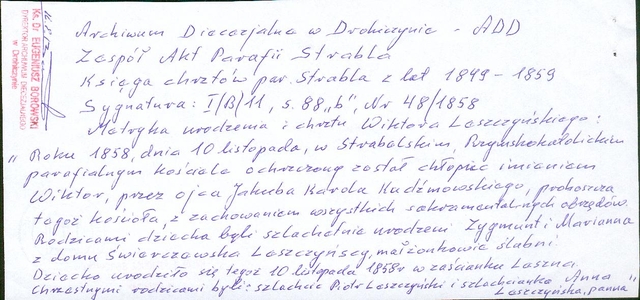 Archiwum Diecezjalne w Drohiczynie - ADD
Zespół Akt Parafii Strabla
Księga chrztów par. Strabla z lat 1849 - 1859
Sygnatura: I/B/11, s. 88 „b", Nr 48/1858
Metryka urodzenia i chrztu Wiktora Leszczyńskiego:
„Roku 1858, dnia 10 listopada, w Strabelskim, Rzymskokatolickim
parafialnym kościele ochrzczony został chłopiec imieniem
Wiktor, przez ojca Jakuba Karola Kudzimowskiego, proboszcza
tegoż kościoła, z zachowaniem wszystkich sakramentalnych obrzędów.
Rodzicami dziecka byli szlachetnie urodzeni Zygmunt i Marianna
z domu Świerczewska Leszczyńscy, małżonkowie ślubni
Dziecko urodziło się tegoż 10 listopada 1858 r w zaścianku Leszna.
Chrzestnymi rodzicami byli: szlachcic Piotr Leszczyński i szlachcianka Anna
Leszczyńska, panna"
Ks. Dr EUGENIUSZ BOROWSKI
DIREKTOR ARCHIWUM DIECEZJALNEGO
w Drohiczynie